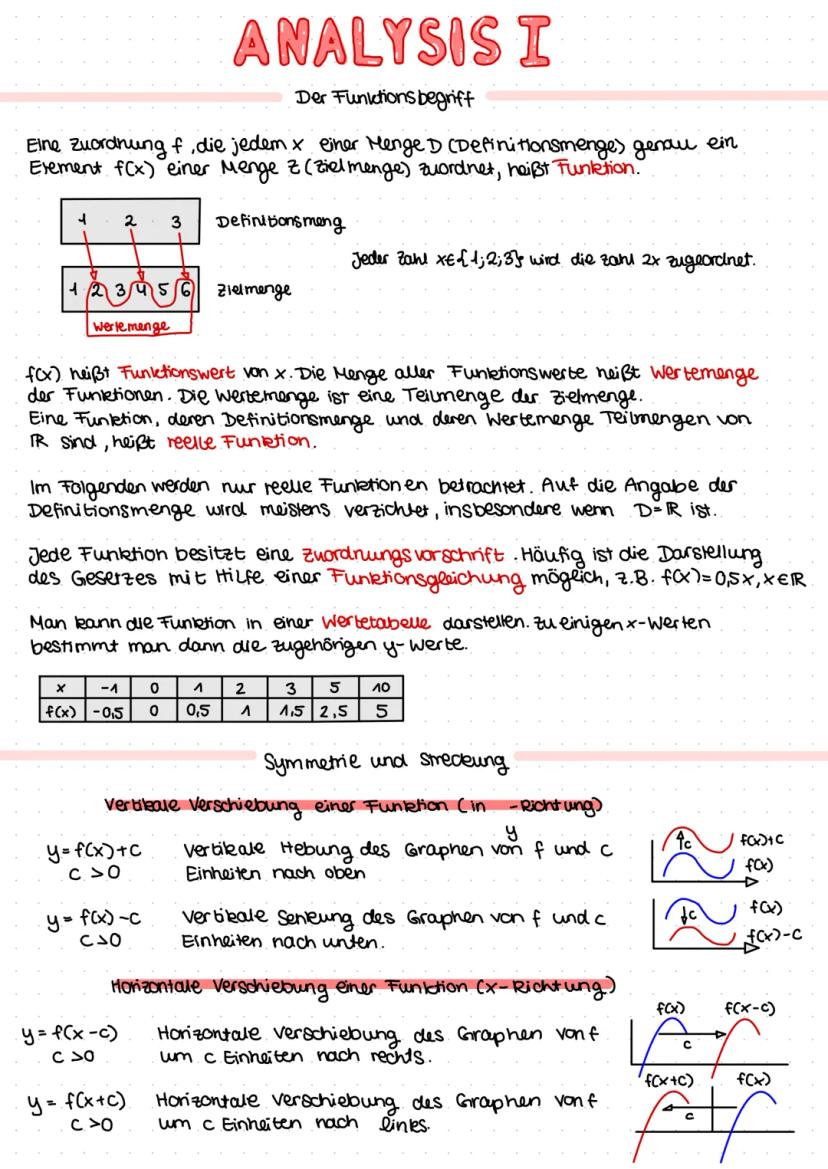 ANALYSIS I
Der Funktionsbegriff
Eine Zuordnung f, die jedem x einer Menge D (Definitionsmenge) genau ein
Element f(x) einer Menge Z (Zielmenge) zuordnet, heißt Funktion.
1 2 3 Definitionsmeng
Jeder Zahl x∈{1;2;3} wird die Zahl 2x zugeordnet.
1 2 3 4 5 6 Zielmenge
Wertemenge
f(x) heißt Funktionswert von x. Die Menge aller Funktionswerte heißt Wertemenge
der Funktionen. Die Wertemenge ist eine Teilmenge der Zielmenge.
Eine Funktion, deren Definitionsmenge und deren Wertemenge Teilmengen von
ℝ sind, heißt reelle Funktion.
Im Folgenden werden nur reelle Funktionen betrachtet. Auf die Angabe der
Definitionsmenge wird meistens verzichtet, insbesondere wenn D=ℝ ist.
Jede Funktion besitzt eine Zuordnungsvorschrift. Häufig ist die Darstellung
des Gesetzes mit Hilfe einer Funktionsgleichung möglich, z.B. f(x)=0,5x, x∈ℝ
Man kann die Funktion in einer Wertetabelle darstellen. Zu einigen x-Werten
bestimmt man dann die zugehörigen y-Werte.
x -1 0 1 2 3 5 10
f(x) -0,5 0 0,5 1 1,5 2,5 5
Symmetrie und Streckung
Vertikale Verschiebung einer Funktion (in -Richtung)
y
y=f(x)+c Vertikale Hebung des Graphen von f und c
c>0 Einheiten nach oben
c f(x)+c
f(x)
y=f(x)-c Vertikale Senkung des Graphen von f und c
c>0 Einheiten nach unten.
c f(x)
f(x)-c
Horizontale Verschiebung einer Funktion (x-Richtung)
y=f(x-c) Horizontale Verschiebung des Graphen von f
c>0 um c Einheiten nach rechts.
f(x) f(x-c)
c
y=f(x+c) Horizontale Verschiebung des Graphen von f
c>0 um c Einheiten nach links.
f(x+c) f(x)
c